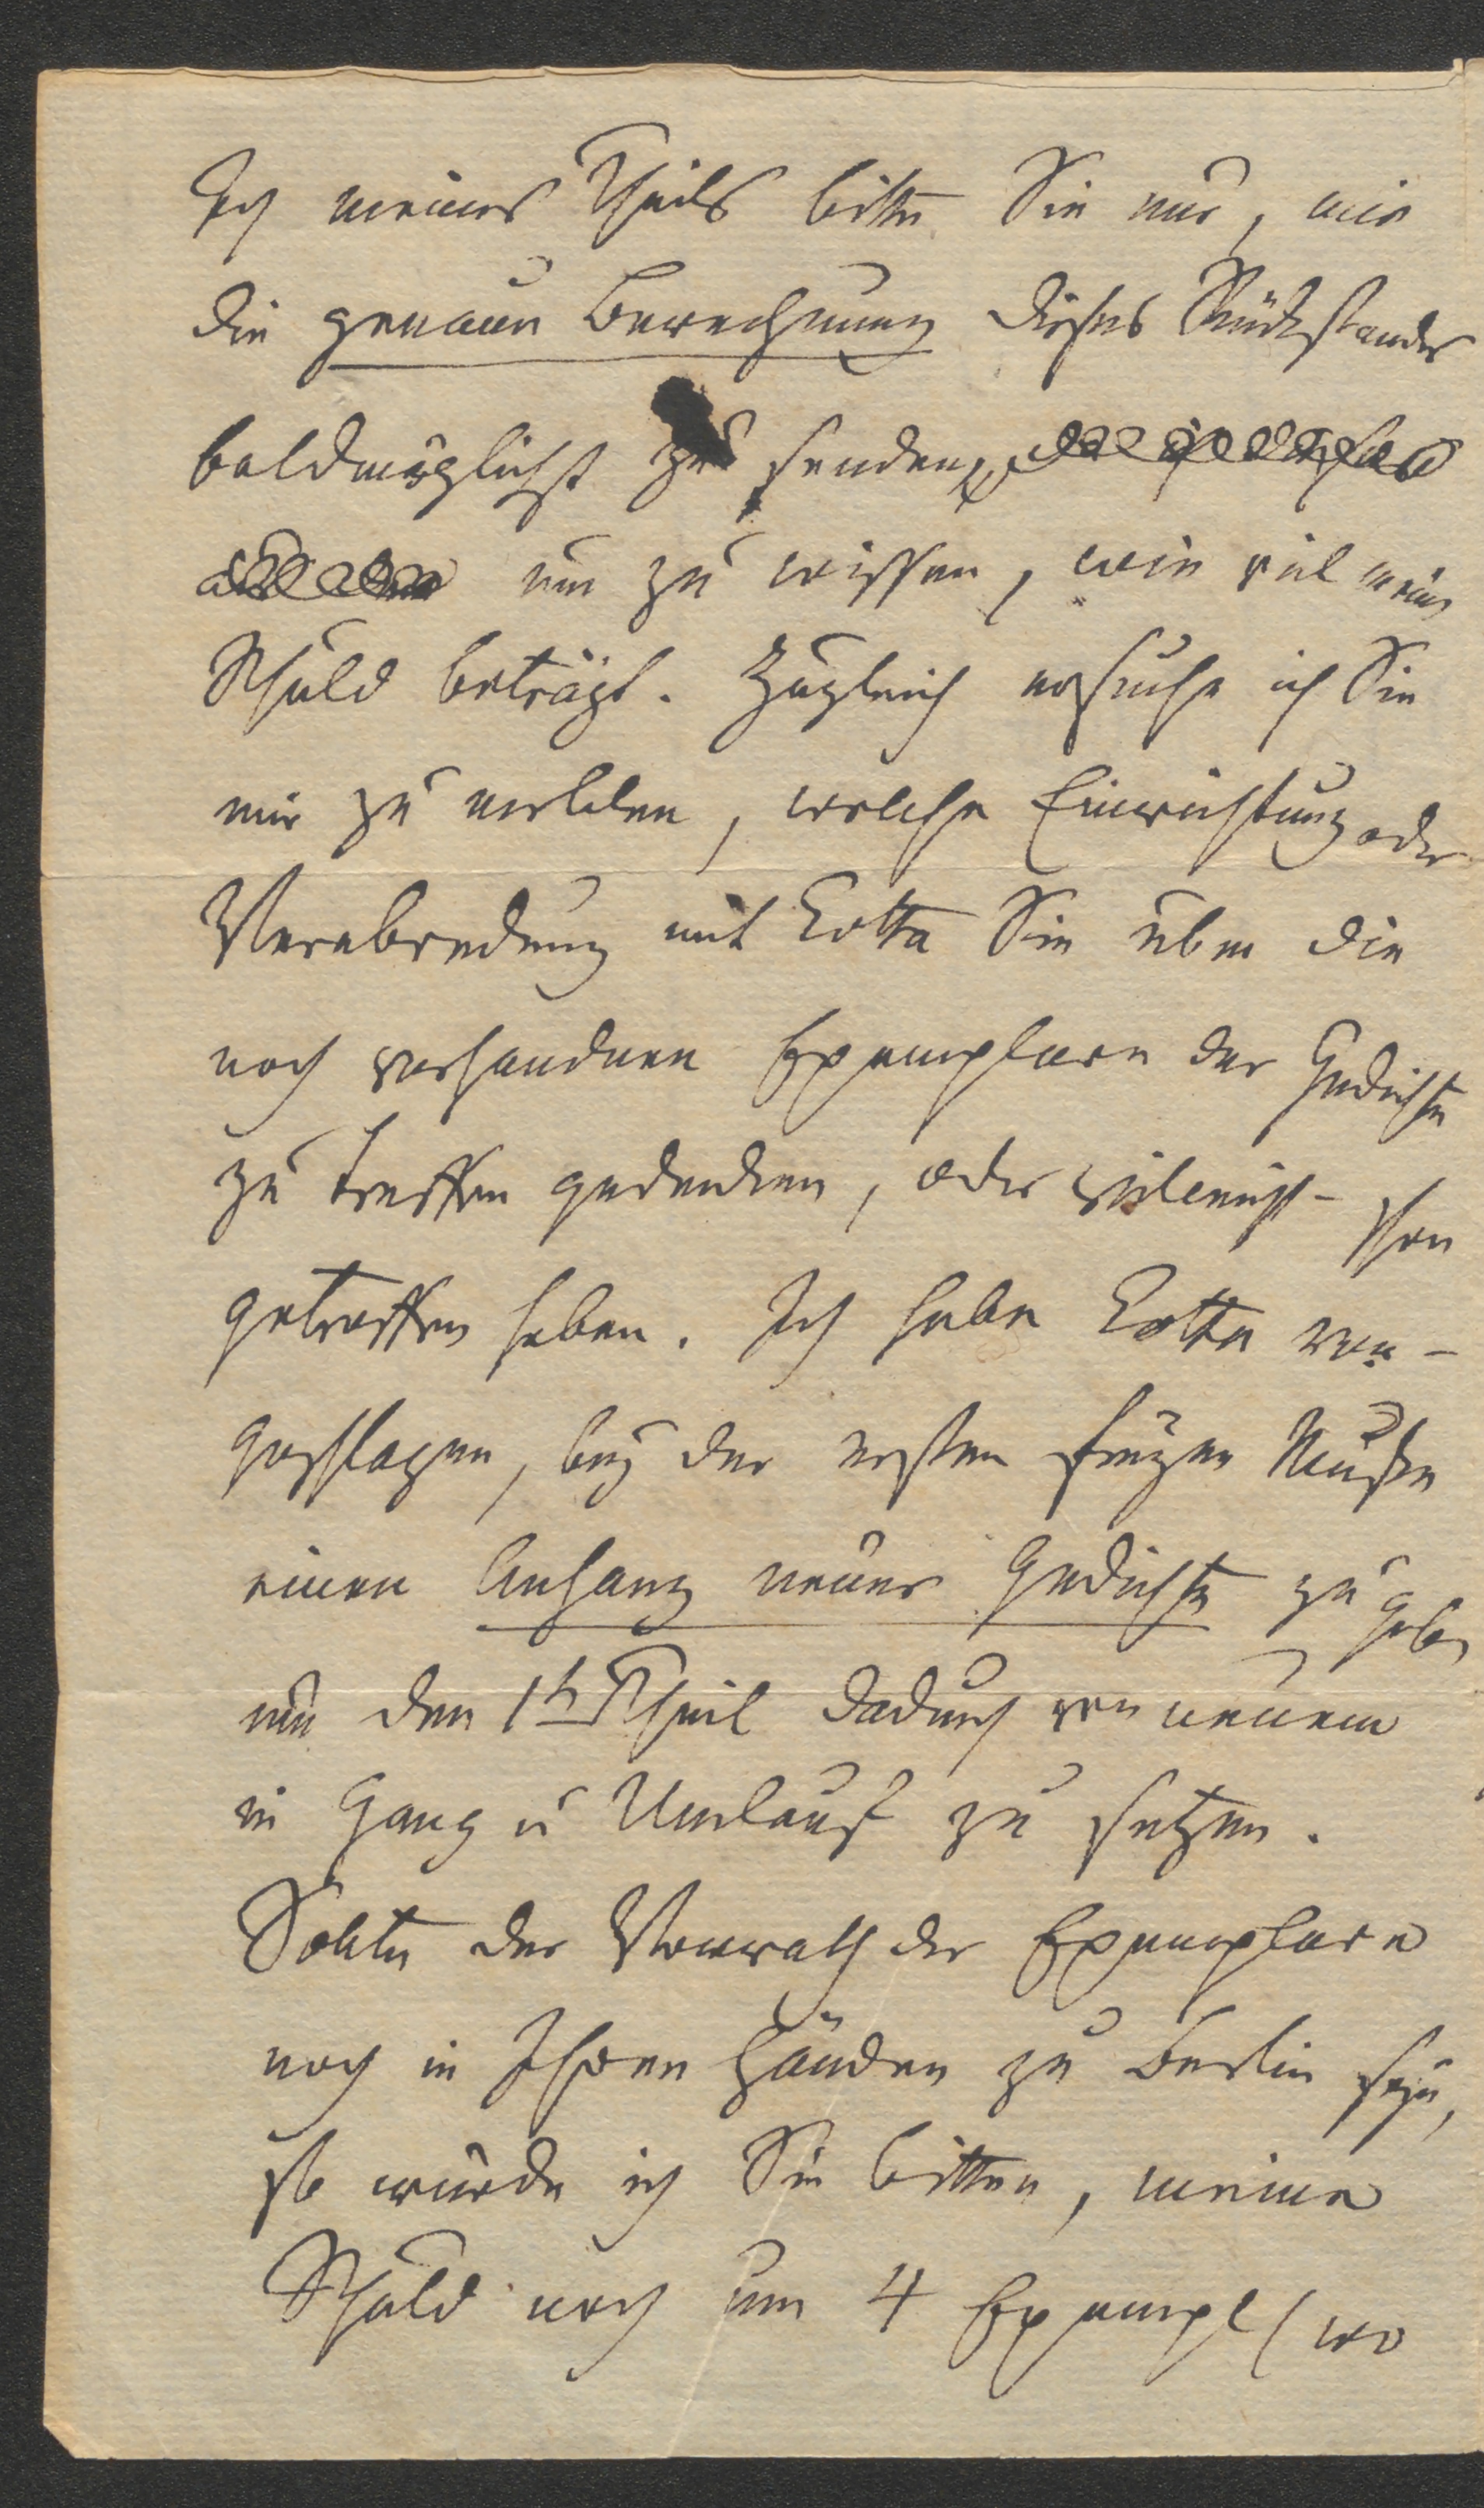 Ich meines Theils bitte Sie nur, mir
die genaue Berechnung dieses Rückstandes
baldmöglichst zu senden,
um zu wissen, wie viel meine
Schuld beträgt. Zugleich ersuche ich Sie
mir zu melden, welche Einrichtung oder
Verabredung mit Cotta Sie über die
noch vorhandnen Exemplare der Gedichte
zu treffen gedenken, oder vielleicht schon
getroffen haben. Ich habe Cotta vor-
geschlagen, bey der ersten freyen Muße
einen Anhang neuer Gedichte zu geben
um den 1t Theil dadurch von neuem
in Gang u Umlauf zu setzen.
Sollte der Vorrath der Exemplare
noch in Ihren Händen zu Berlin seyn,
so würde ich Sie bitten, meine
Schuld noch um 4 Exempl (wo